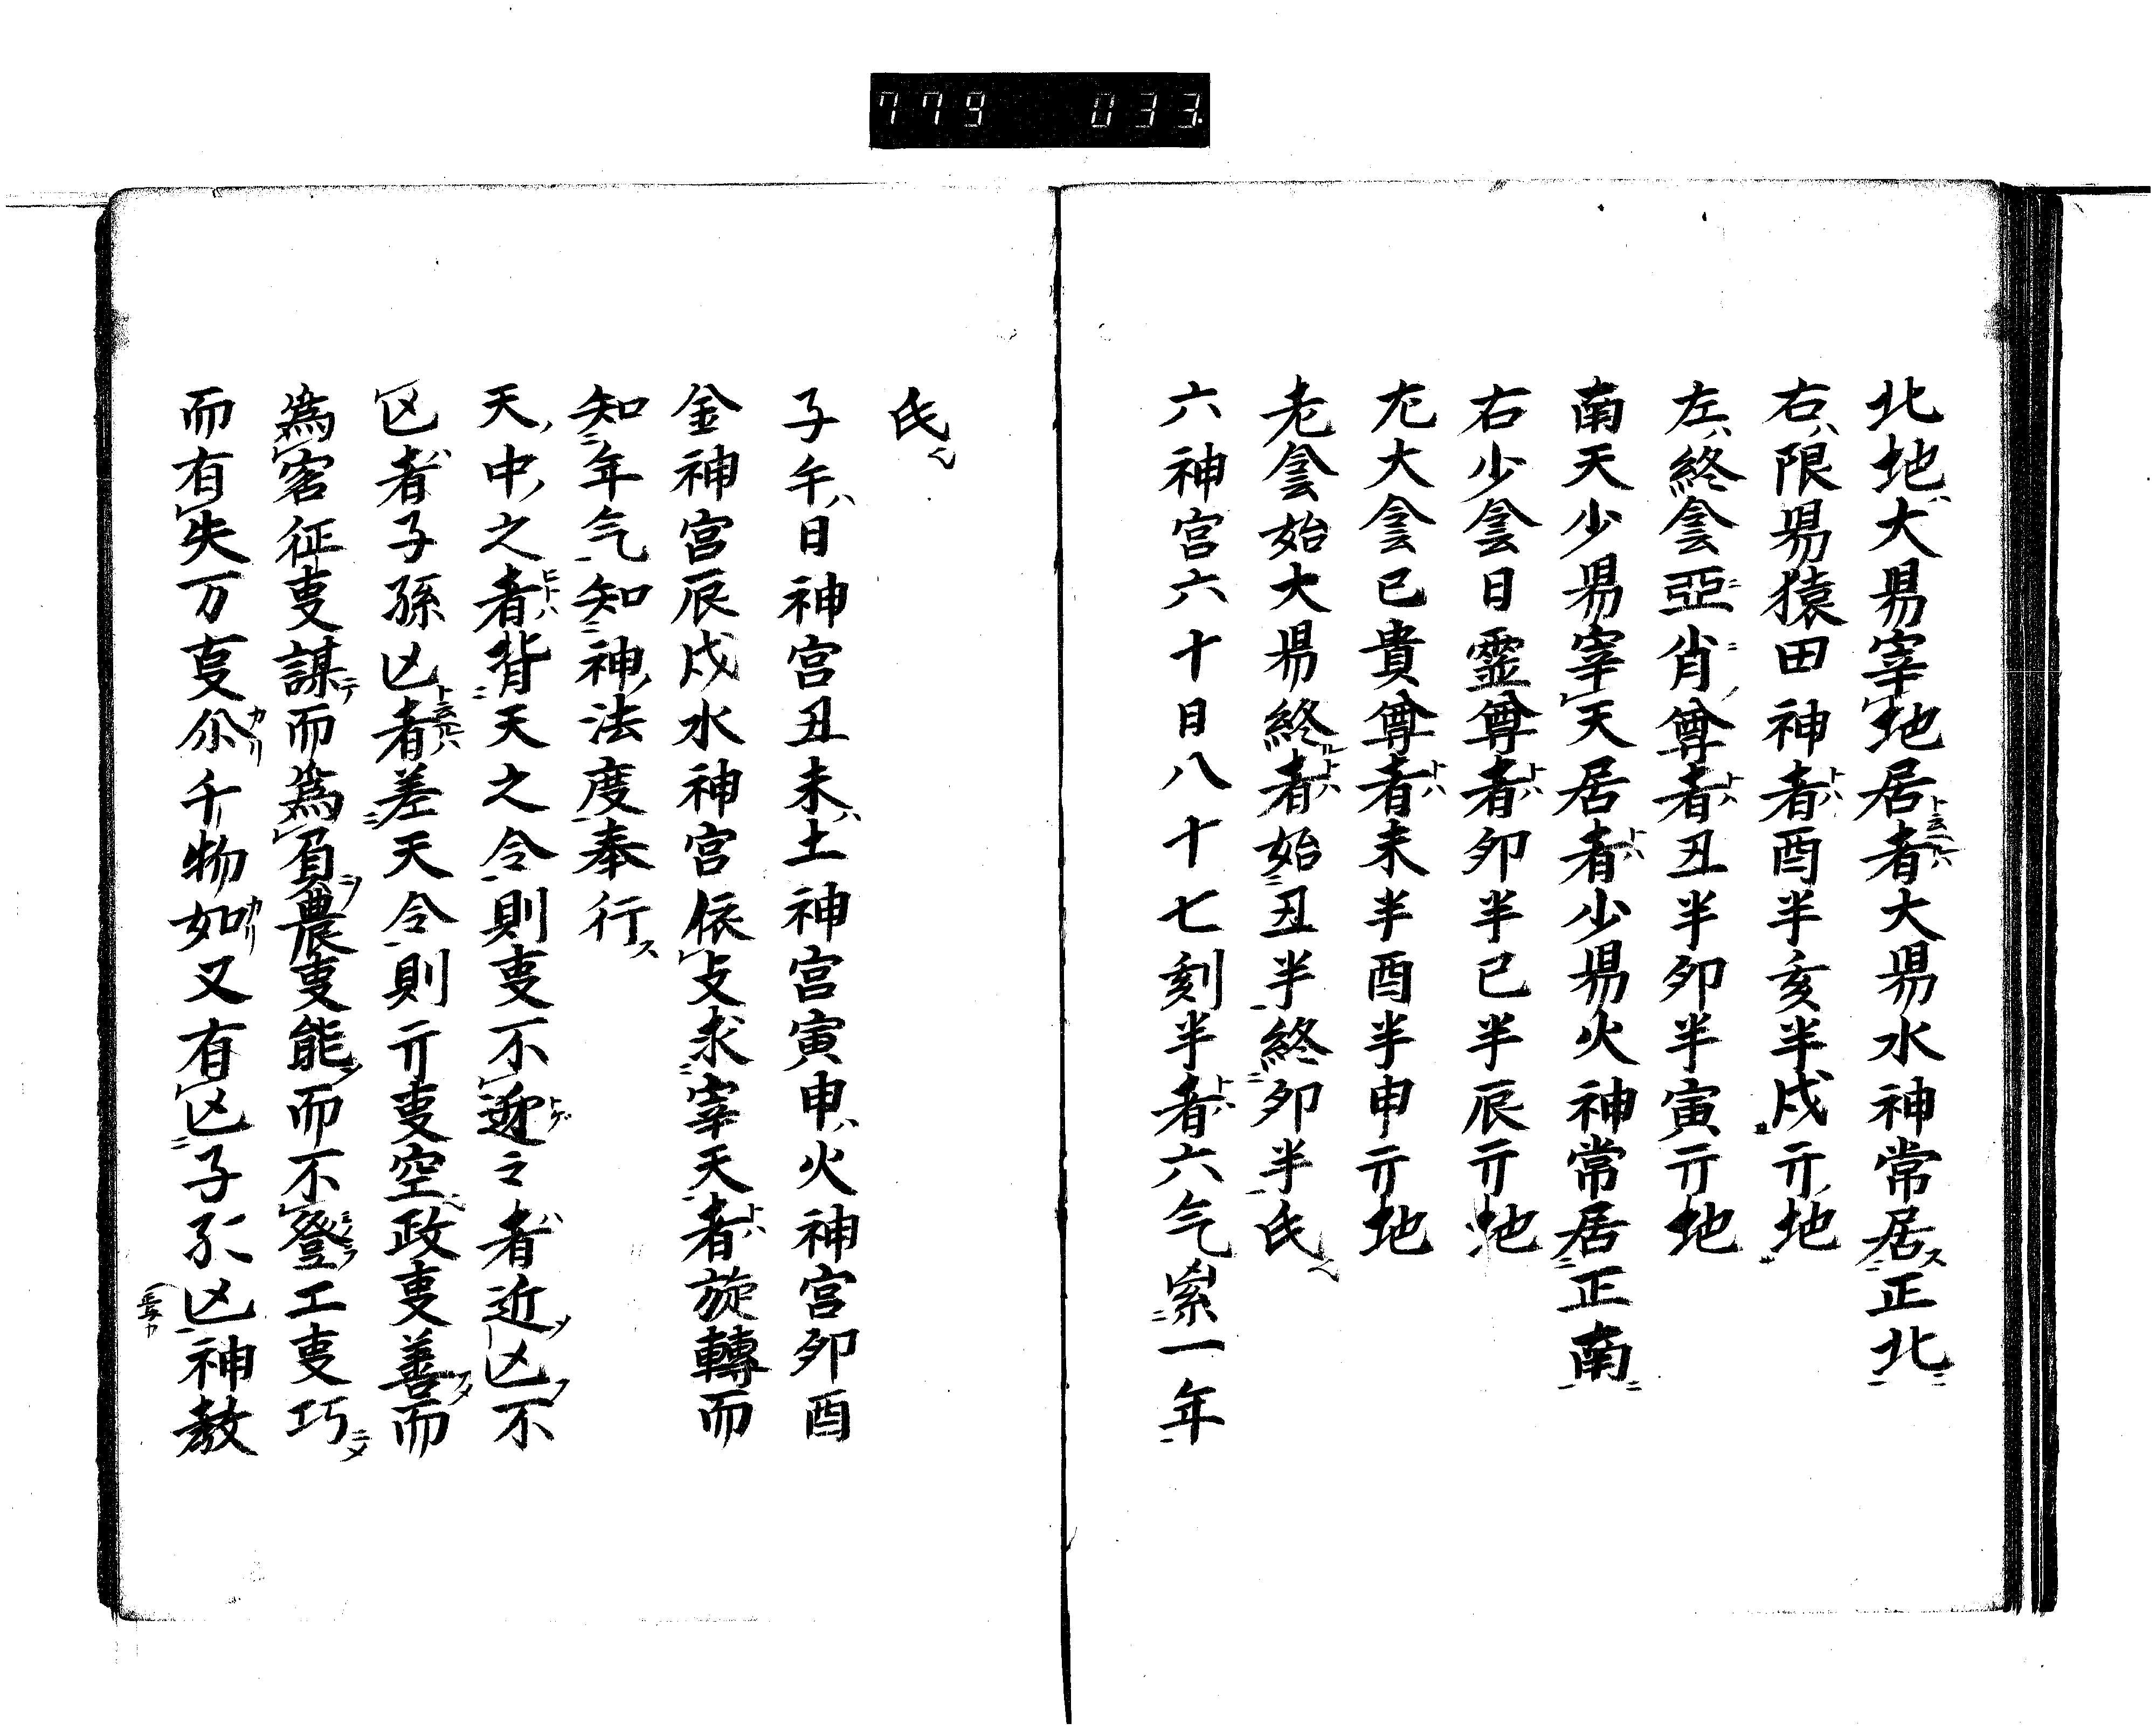 779 033
北地大昜宰地居者大昜水神常居正北
右限昜猿田神者酉半亥半戌亓地
左終侌亞肖尊者丑半卯半寅亓地
南天少昜宰天居者少昜火神常居正南
右少侌日靈尊者卯半巳半辰亓地
尢大侌已貴尊者未半酉半申亓地
老侌始大昜終者始丑半終卯半氐
六神宮六十日八十七刻半者六气累一年
氐
子午日神宮丑未土神宮寅申火神宮卯酉
金神宮辰戌水神宮依攴求宰天者旋轉而
知年气知神法度奉行
天中之者背天之令則叓不迎之者近凶不
凶者子孫凶者差天令則亓叓空政叓善而
為客征叓謀而為負農叓能而不登工叓巧
而有失万叓尒千物如又有凶子孫凶神教